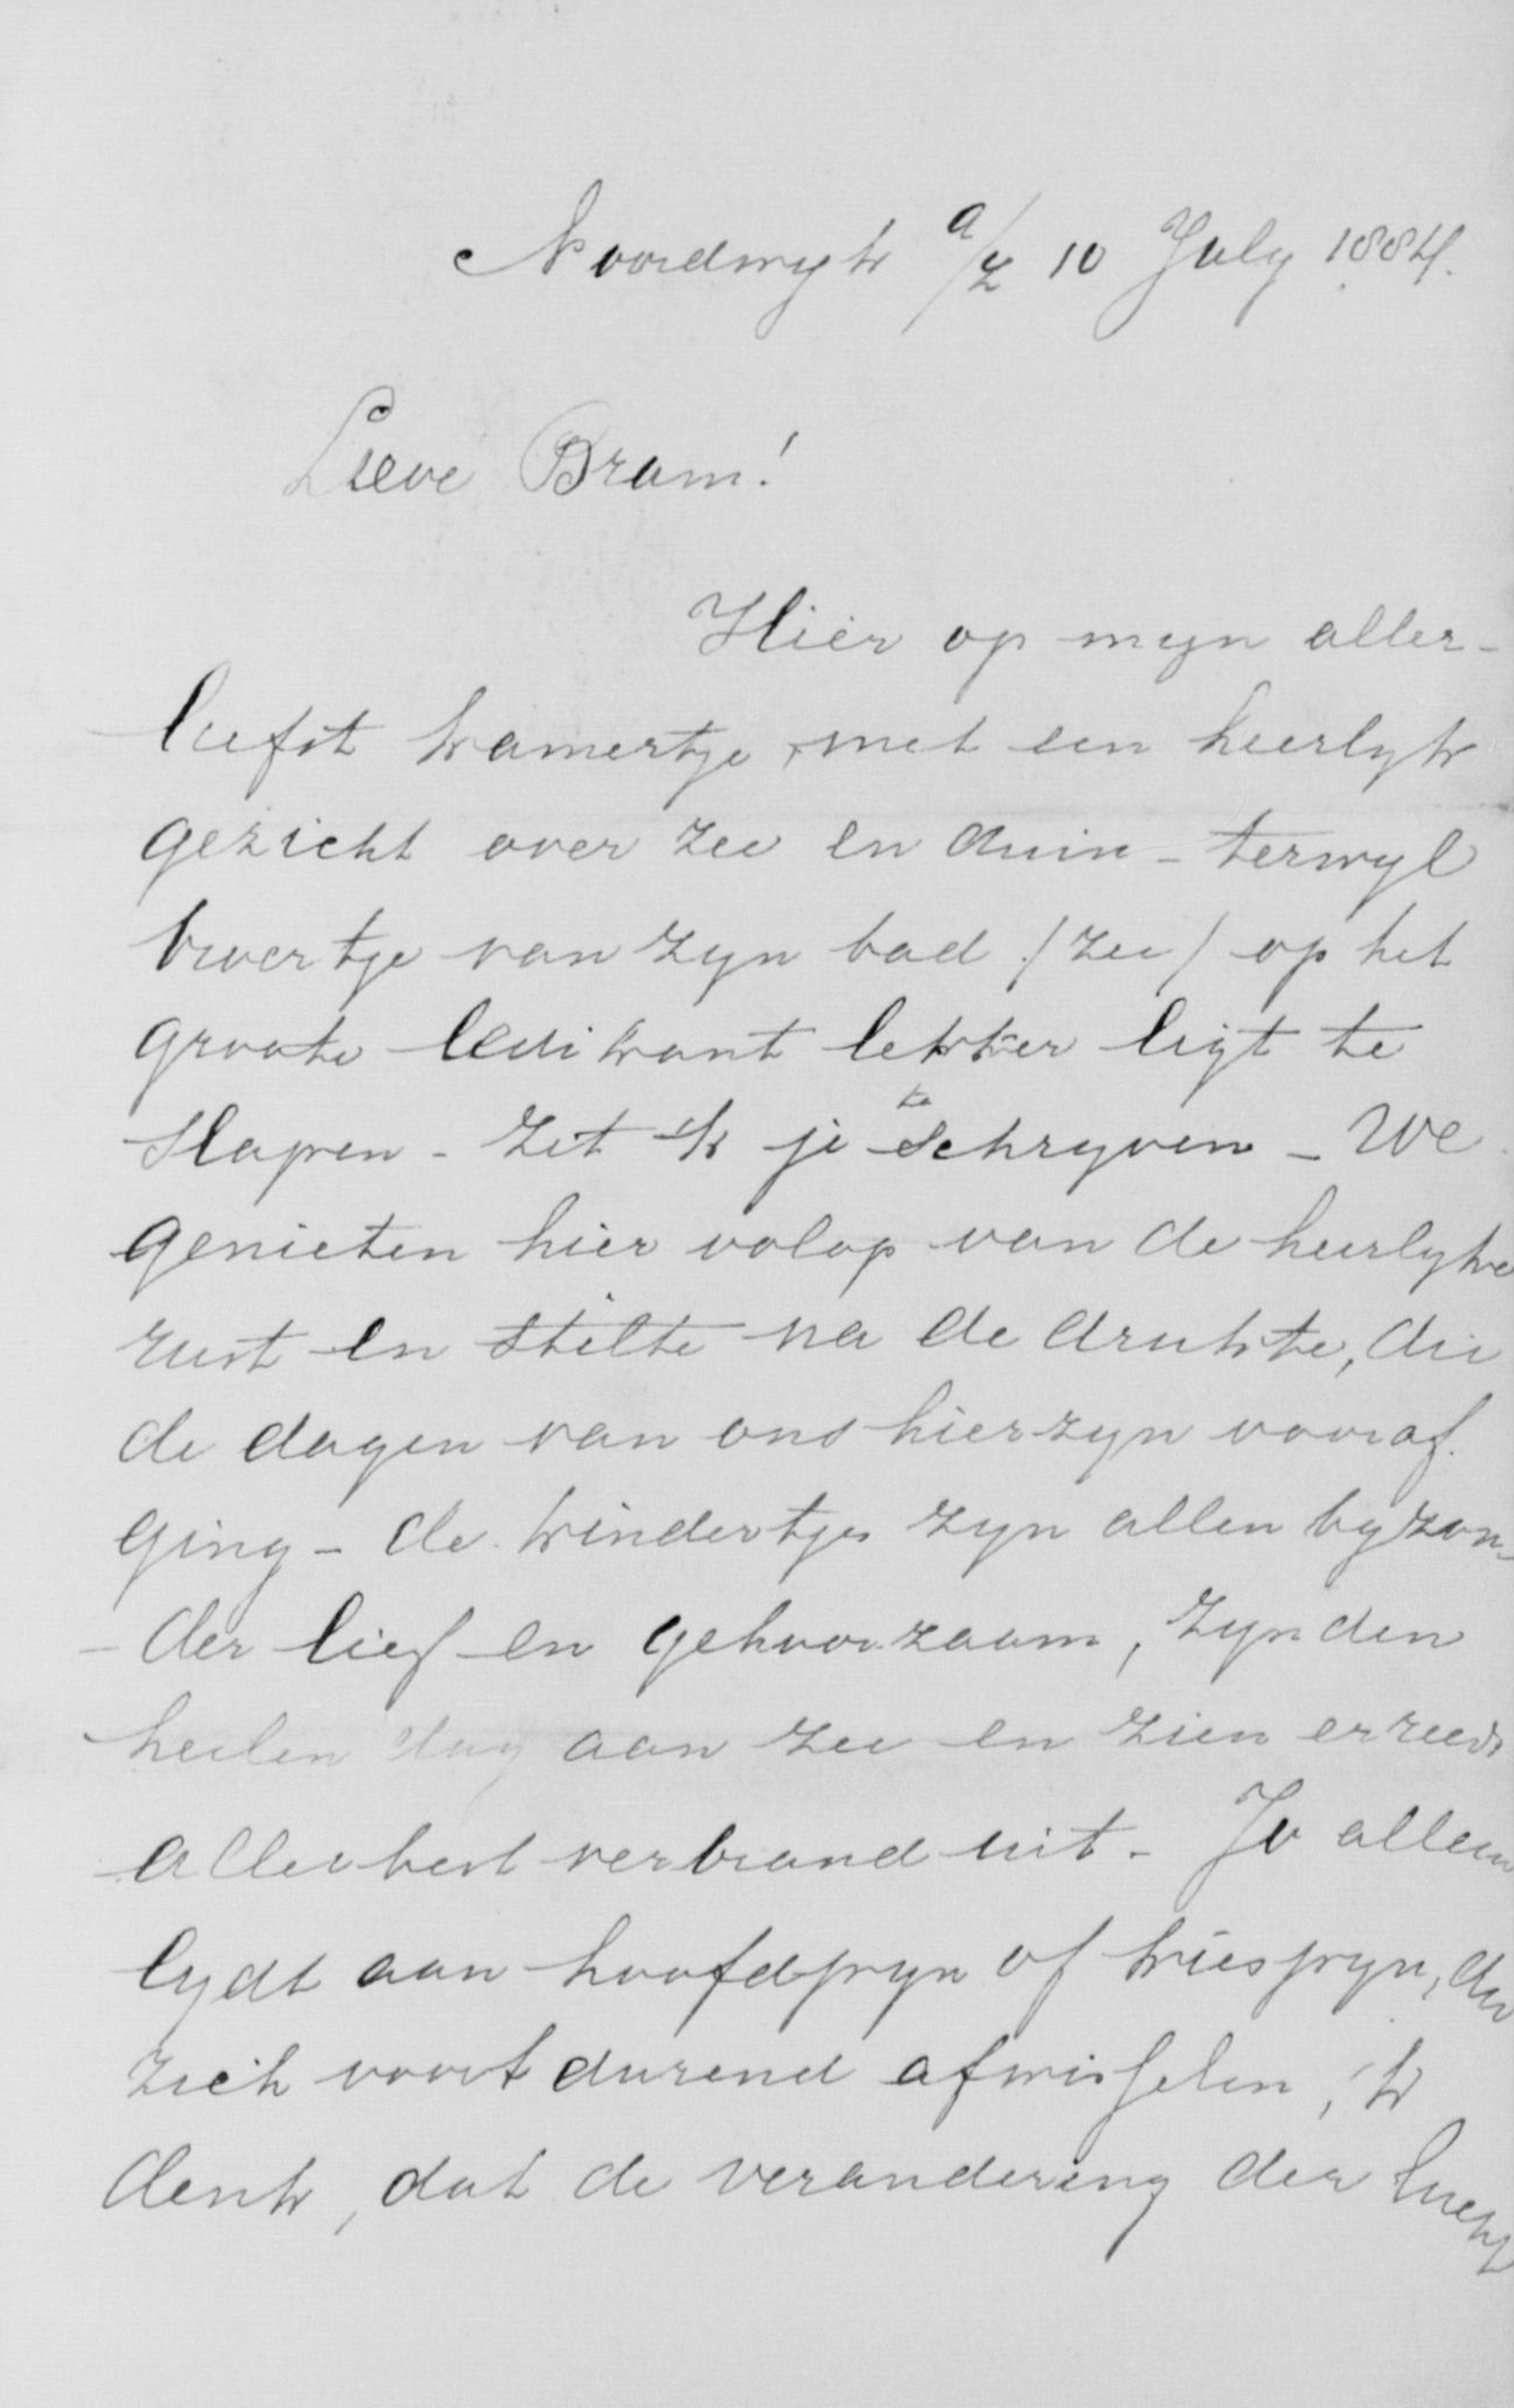 Noordwyk a/z 10 July 1884.
Lieve Bram!
Hier op myn aller-
liefst kamertje, met een heerlyk
gezicht over zee en duin - terwyl
broertje van zyn bad (zee) op het
groote ledikant lekker ligt te
slapen - zit ik je te schryven - We
genieten hier volop van de heerlyke
rust en stilte na de drukte, die
de dagen van ons hierzyn vooraf.
ging - de kindertjes zyn allen byzon-
-der lief en gehoorzaam, zyn den
heelen dag aan zee en zien er reeds
allerbest verbrand uit. Jo alleen
lydt aan hoofdpyn of kiespyn, die
zich voortdurend afwisselen, ik
denk, dat de verandering der lucht